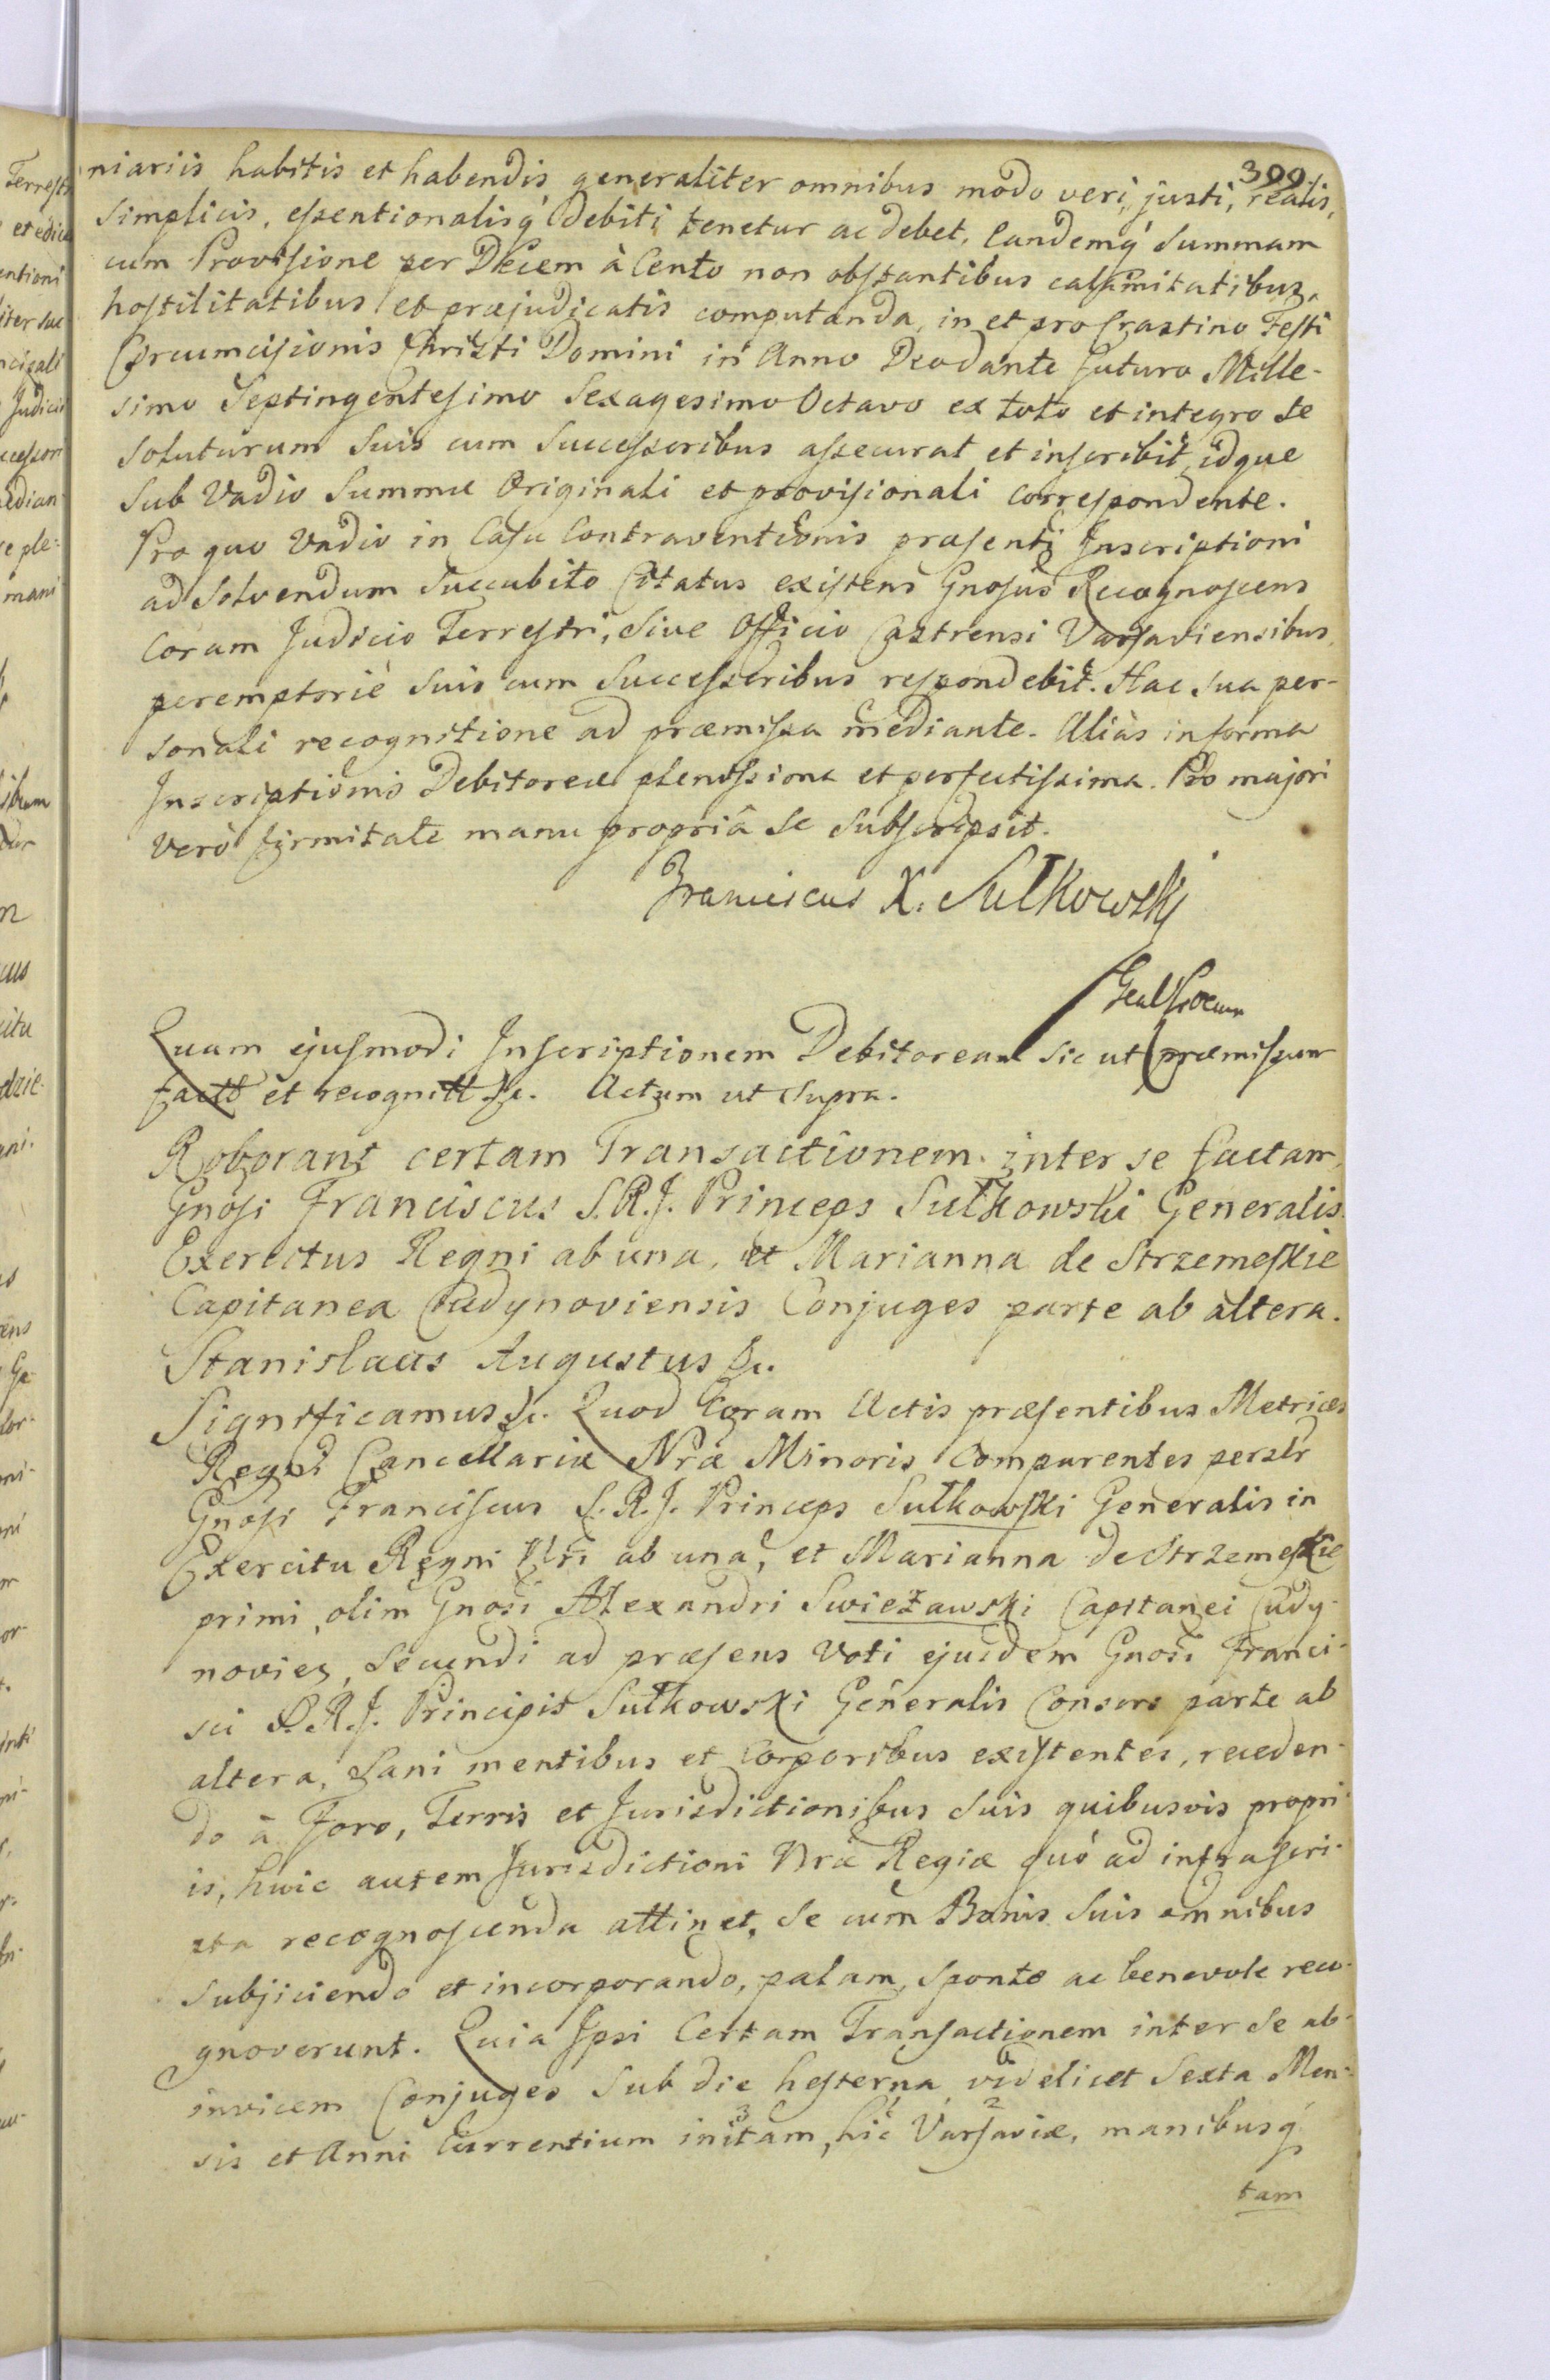 399
niariis habitis et habendis generaliter omnibus modo veri, justi, realis,
Simplicis, essentionalisq́ Debiti tenetur ac debet. Eandemq́ Summam
cum Provisione per Decem à Cento non obstantibus calamitatibus,
hostilitatibus et præjudicatis computanda, in et pro Crastino Festi
Circumcisionis Christi Domini in Anno Deo dante futuro Mille-
simo Septingentesimo Sexagesimo Octavo ex toto et integro se
Soluturum Suis cum Successoribus assecurat et inscribit, idque
Sub Vadio Summæ Originali et provisionali correspondente.
Pro quo Vadio in Casu Contraventionis præsenti Inscriptioni
ad Solvendum Succubito Citatus existens Gnosus Recognoscens
Coram Judicio Terrestri, Sive Officio Castrensi Varsaviensibus
peremptorie Suis cum Successoribus respondebit. Hac sua per-
sonali recognitione ad præmissa mediante. Aliàs in forma
Inscriptionis Debitoreæ plenissima et perfectissima. Pro majori
verò firmitate manu propriâ Se Subscripsit.
Franciscus X. Sułkowski
Quam ejusmodi Inscriptionem Debitoream sic ut præmissum
factt et recognitt &c. Actum ut Supra.
Roborant certam Transactionem inter se factam
Gnosi Franciscus S.R.J. Princeps Sułkowski Generalis
Exerectus Regni ab una, et Marianna de Strzemeskie
Capitanea Cudynoviensis Conjuges parte ab altera.
Stanislaus Augustus &c.
Significamus &c. Quod Coram Actis præsentibus Metrices
Regni Cancellariæ Nræ Minoris Comparentes persłr
Gnosi Franciscus S.R.J. Princeps Sułkowski Generalis in
Exercitu Regni Nri ab una, et Marianna de Strzemeskie
primi, olim Gnosi Alexandri Swieżawski Capitanei Cudy-
novien, Secundi ad præsens Voti ejusdem Gnosi Franci-
sci S.R.J. Principis Sułkowski Generalis Consors parte ab
altera, Sani mentibus et Corporibus existentes, receden-
do à Foro, Terris et Jurisdictionibus Suis quibusvis propri-
is, huic autem Jurisdictioni Nræ Regiæ quó ad infrascri-
pta recognoscenda attinet, Se cum Bonis Suis omnibus
subjiciendo et incorporando, palam, Sponte ac benevole reco-
gnoverunt. Quia Ipsi Certam Transactionem inter Se ab-
invicem Conjuges Sub die hesterna videlicet Sexta Men-
sis et Anni Currentium initam, hic Varsaviæ, manibusq́
tam